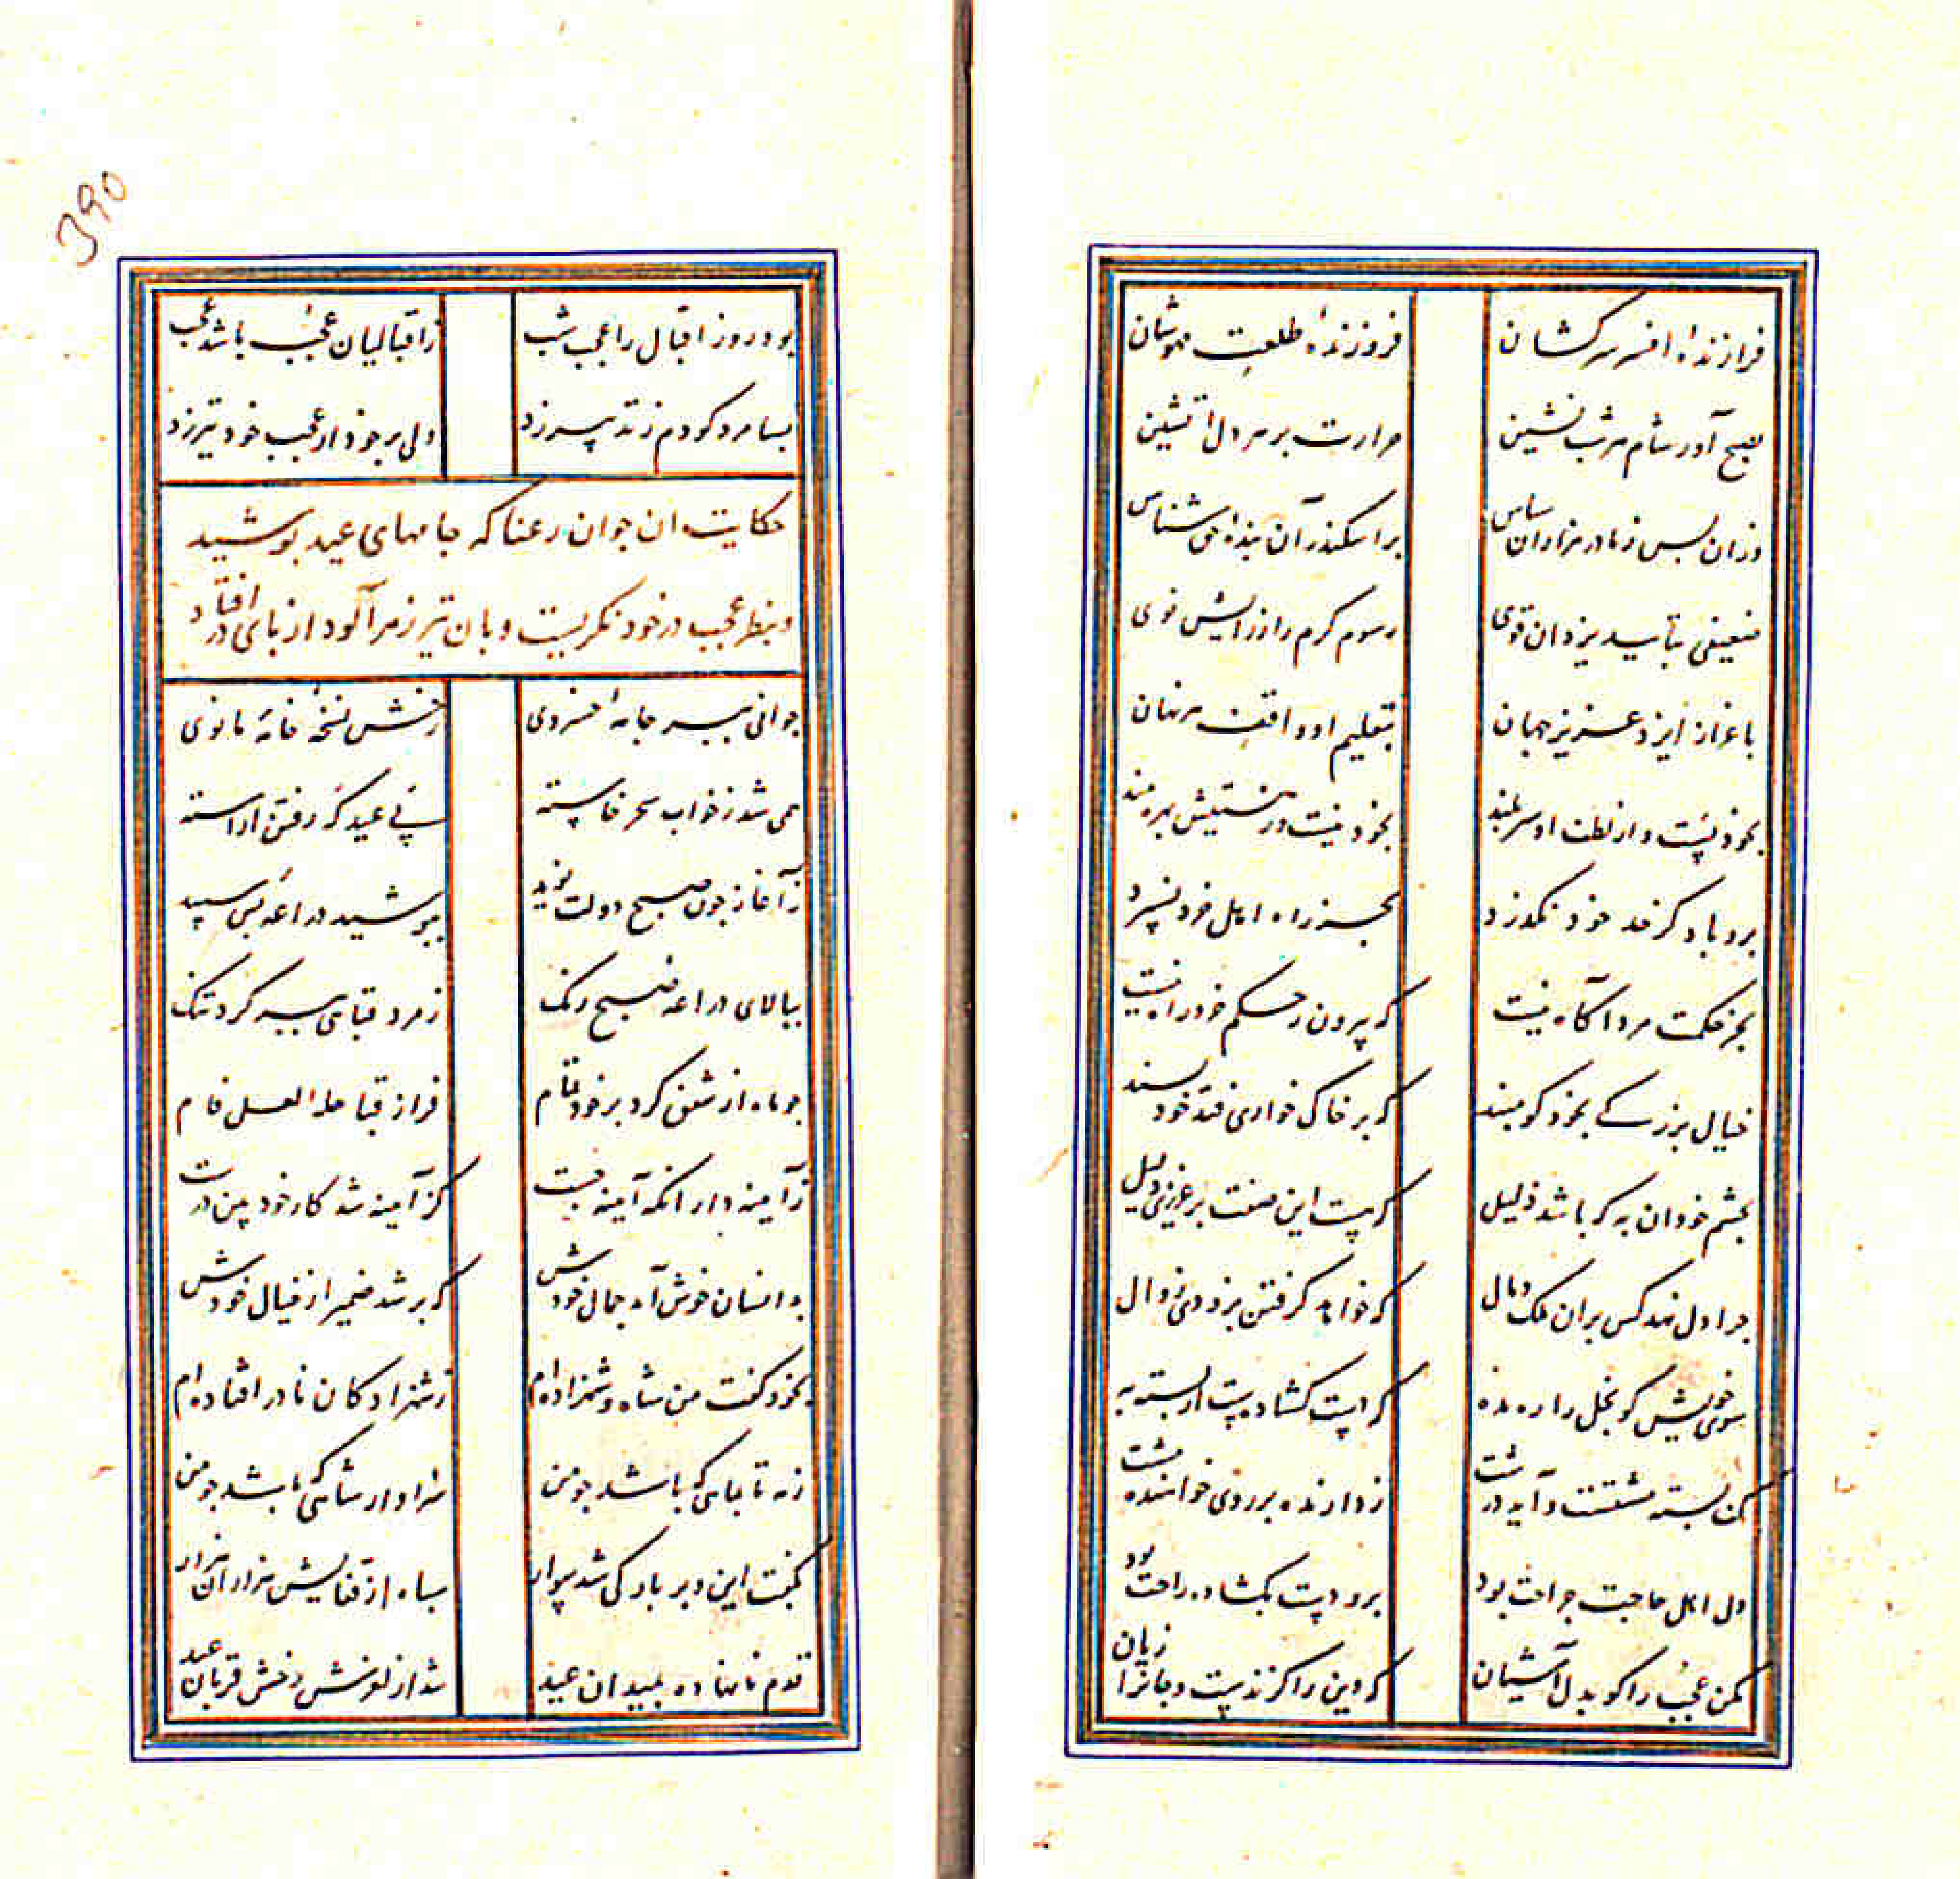 فرازنده افسر سرکشان فروزنده طلعت مهوشان
بصبح آور شام هر شب نشین حرارت بر هر دل آتشین
وزان پس ز ما در هزاران سپاس بر اسکندر آن بنده حق شناس
ضعیفی بتأیید یزدان قوی رسوم کرم را ازو نوی
باعزاز ایزد عزیز جهان بتعلیم او واقف هر نهان
بخود پست و از لطف او سر بلند بخود نیست در هستیش بهره مند
برد باد کز حد خود نگذرد بجز راه اهل خرد نسپرد
بجز حکمت مرد آگاه نیست که بیرون ز حکم خود راه نیست
خیال بزرگی بخود گو مبند که بر خاک خواری فتد خود پسند
بچشم خود آن به که باشد ذلیل که هست این صفت بر عزیزی دلیل
چرا دل نهد کس بران ملک و مال که خواهد گرفتن بزودی زوال
سوی خویش گو بخل را ره مده که دست گشاده هست از بسته به
مکن بسته مشتت در آید درشت ز دارنده بر روی خواهنده مشت
دل اهل حاجت جراحت بود برو دست بگشاده راحت بود
مکن عجب را گو بدل آشیان که دین را گزندست و جانرا زیان
390
بود روز اقبال را عجب شب ز اقبالیان عجب باشد عجب
بسا مرد کو دم ز تدبیر زد ولی بر خود از عجب خود تیر زد
حکایت ان جوان رعنا که جامهای عید پوشید
و بنظر عجب در خود نگریست و بان تیر زهرآلود از پای در افتاد
جوانی ببر جامه خسروی رخش نسخه خانه مانوی
همی شد ز خواب سحر خاسته پی عید گه رفتن اراسته
ز آغاز چون صبح دولت نوید بپوشید دراعه بس سپید
ببالای دراعه صبح رنگ زمرد قبای سیه کرد تنگ
چو ماه از شفق کرد بر خود تمام فراز قبا حله لعل فام
ز آیینه دار انکه آیینه جست کز آیینه شد کار خود بین درست
بد انسان خوش آمد جمال خودش که بر شد ضمیر از خیال خودش
بخود گفت من شاه و شهزاده ام ز شهزادگان نادر افتاده ام
زه تا بماهی که باشد چو من سزاوار شاهی که باشد چو من
بگفت این و بر بارگی شد سوار سپاه از قفایش هزاران هزار
قدم نانهاده بمیدان عید شد از لغزش رخش قربان عید